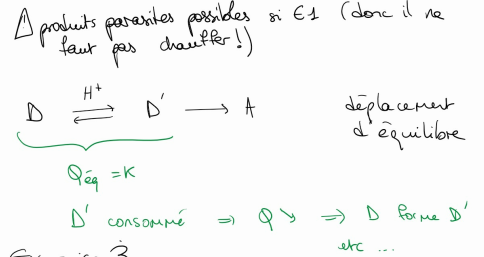 ⚠ produits parasites possibles si E1 (donc il ne
faut pas chauffer !)
D ⇌ D' → A déplacement
H+
d'équilibre
Qéq = K
D' consommé ⇒ Q ↘ ⇒ D forme D'
etc ...